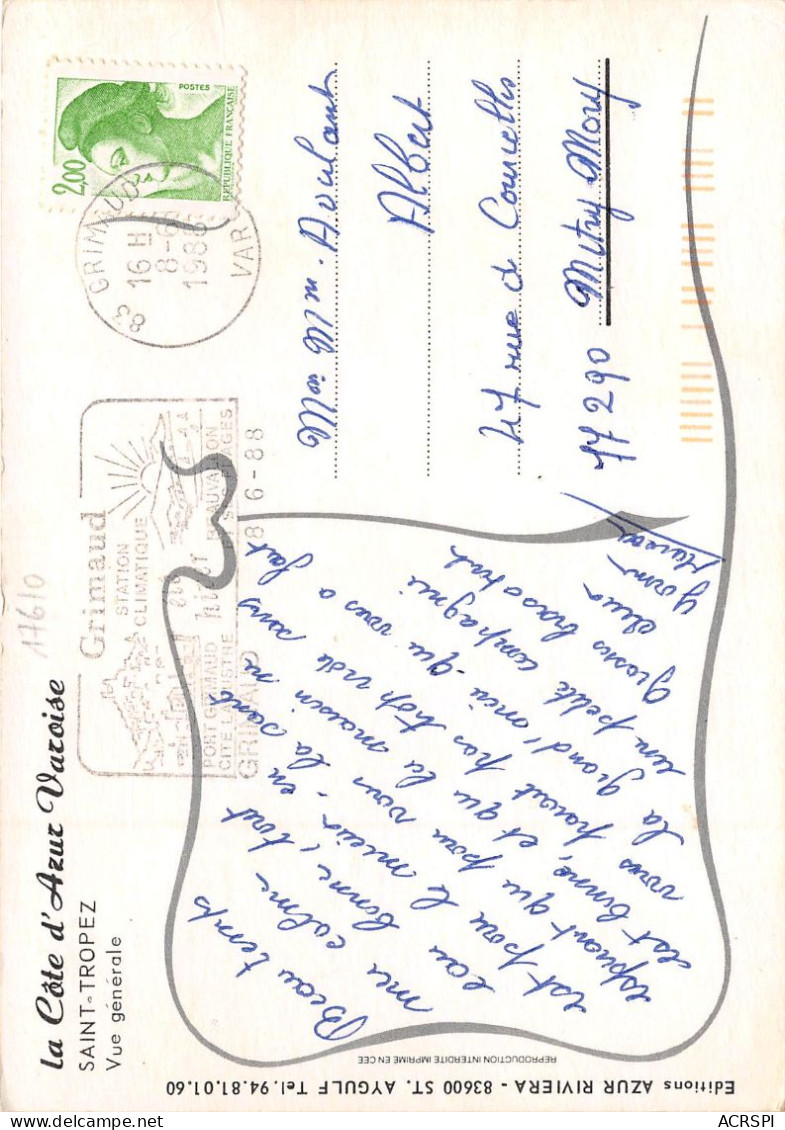 la Côte d'Azur Varoise
SAINT-TROPEZ
Vue générale
17610
POSTES
2,00
REPUBLIQUE FRANÇAISE
83 GRIMAUD
16 H
8-6
1988
VAR
Grimaud
STATION
CLIMATIQUE
PORT GRIMAUD
CITE LACUSTRE
GRIMAUD
8 6-88
Beau temps
mer calme, tout
eau bonne, en
est pour le mieux - la santé
espérant que pour vous
est bonne, et que la maison ne
vous parait pas trop vide sans
la grand'mère - qui vous a fait
un petite compagnie
Grosses bises
deux
Albert
47 rue de Courcelles
77290 Mitry Mory
Editions AZUR RIVIERA - 83600 ST. AYGULF Tel. 94.81.01.60
REPRODUCTION INTERDITE IMPRIME EN CEE
delcampe.net
ACRSPI